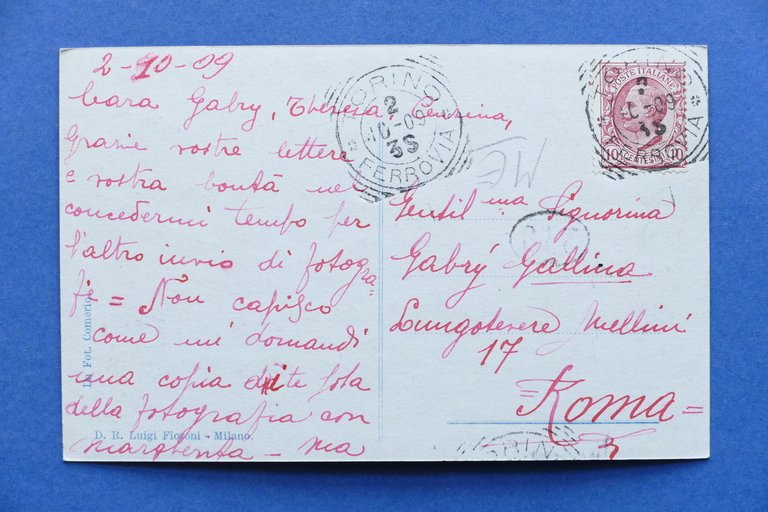 2-10-09
Cara Gabry, Theresa, Cenrina,
Grazie vostre lettere
e vostra bontà nel
concedermi tempo per
l'altro invio di fotogra
fie = Non capisco
come mi domandi
una copia di te sola
della fotografia con
margherita - ma
Da Fot. Comerio
D. R. Luigi Fioroni - Milano.
TORINO
2
10-09
3S
FERROVIA
POSTE ITALIANE
10 CENTESIMI 10
FERROVIA
Gentil.ma Signorina
Gabrÿ Gallina
Lungotevere Mellini
17
=Roma=
TORINO